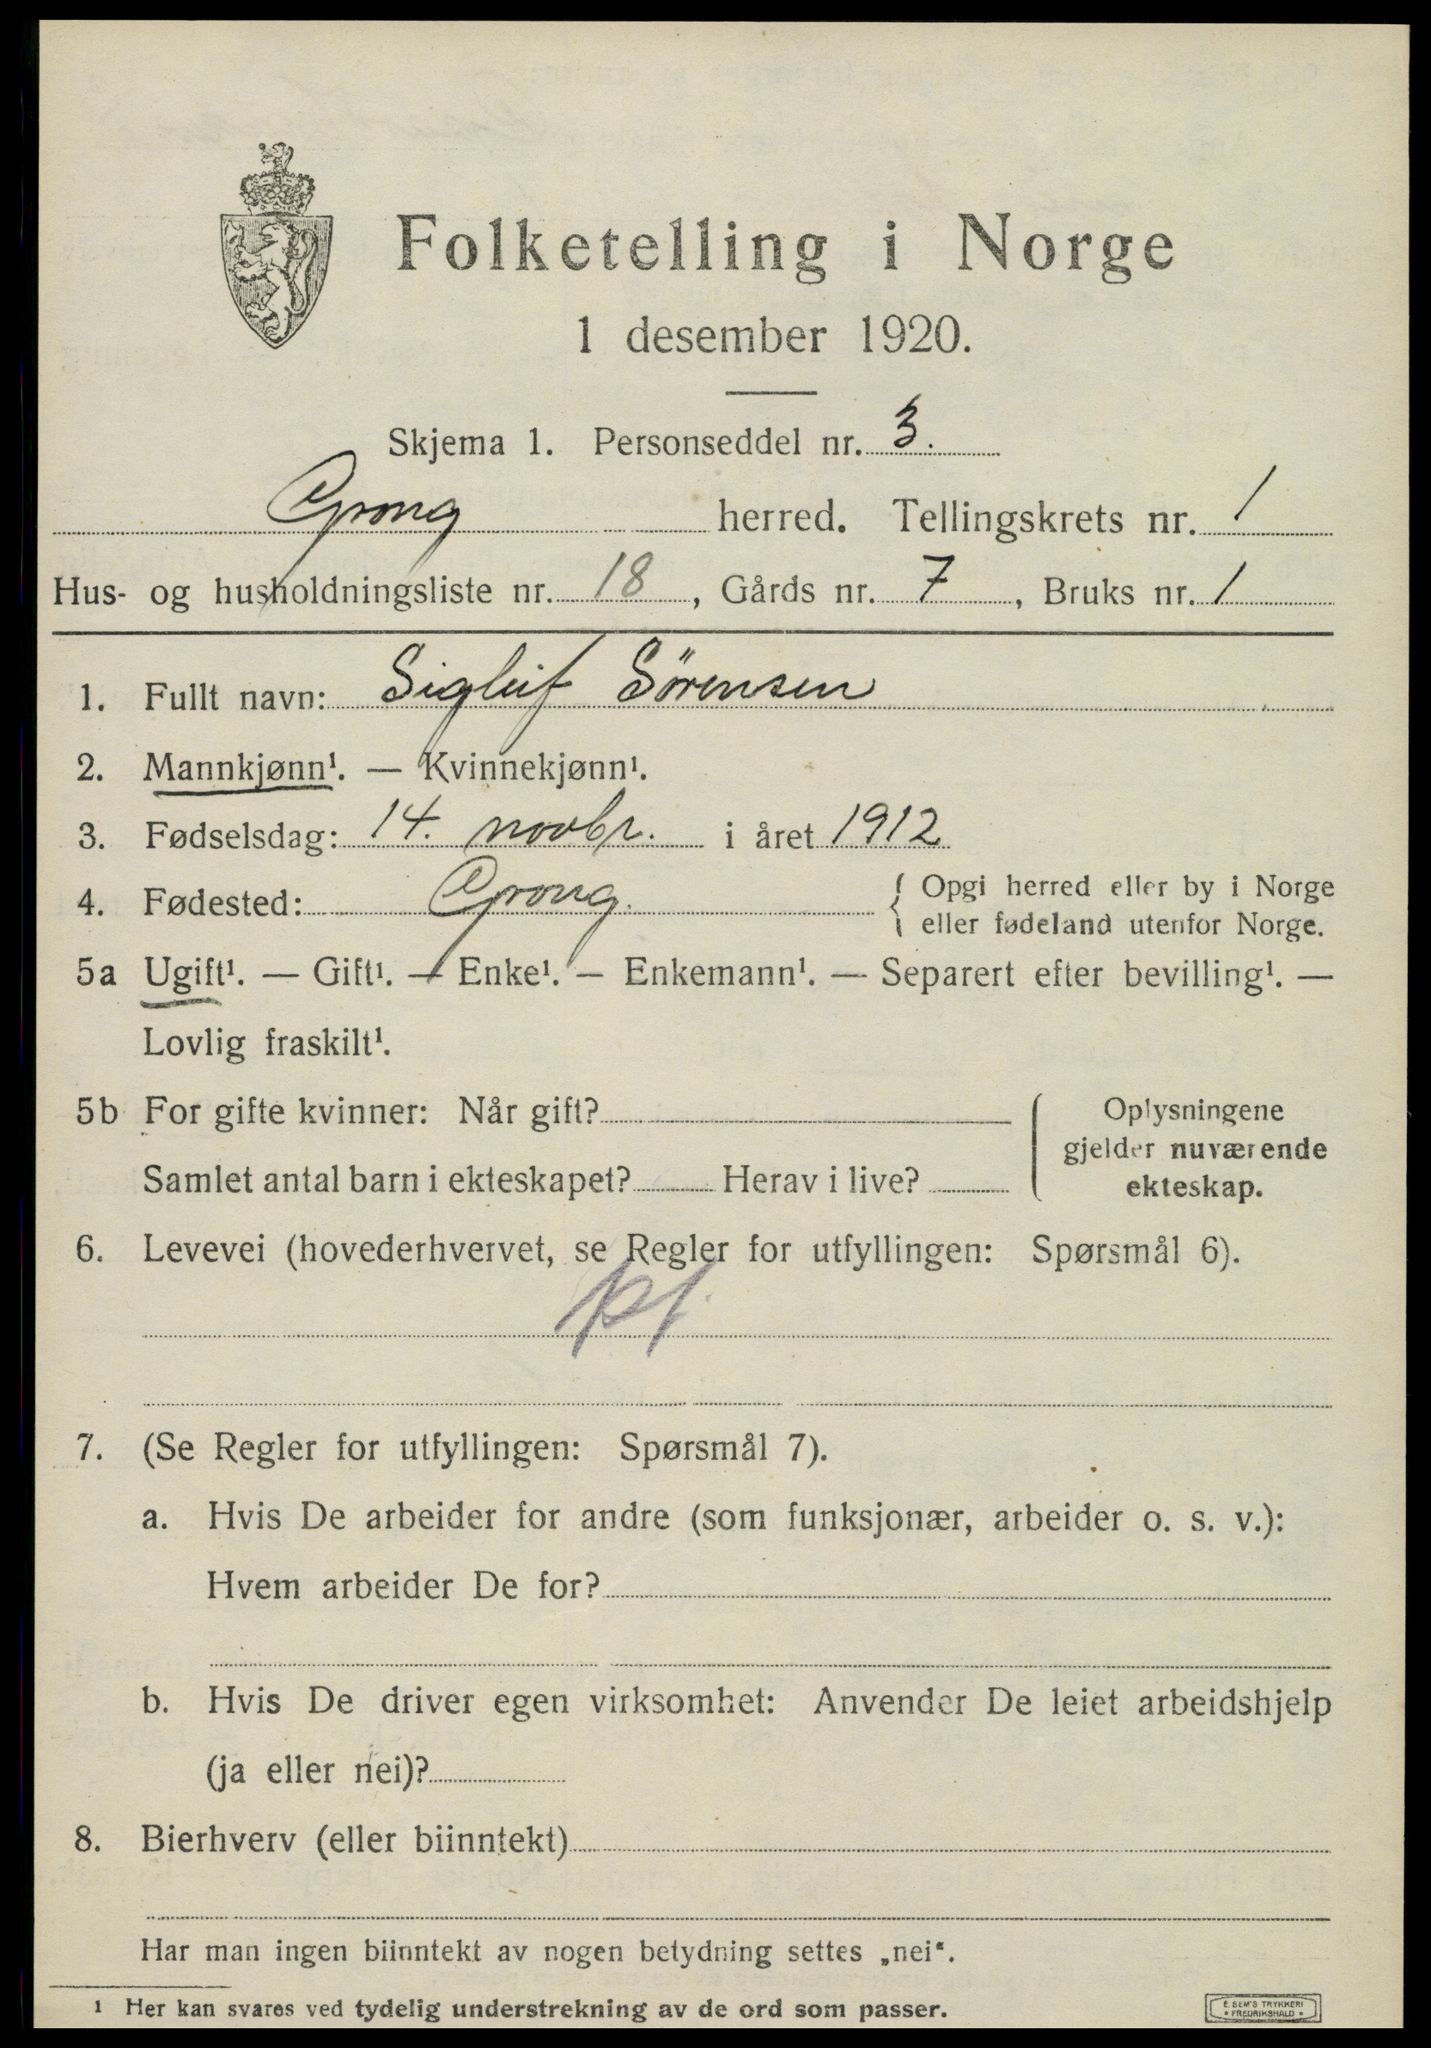 Folketelling i Norge
1 desember 1920.
Skjema 1. Personseddel nr. 3.
Grong herred. Tellingskrets nr. 1
Hus- og husholdningsliste nr. 18, Gårds nr. 7, Bruks nr. 1
1. Fullt navn: Sigleif Sörensen
2. Mannkjønn¹. — Kvinnekjønn¹.
3. Fødselsdag: 14. novbr. i året 1912
4. Fødested: Grong. { Opgi herred eller by i Norge
eller fødeland utenfor Norge.
5a Ugift¹. — Gift¹. — Enke¹. — Enkemann¹. — Separert efter bevilling¹. —
Lovlig fraskilt¹.
5b For gifte kvinner: Når gift?
Samlet antal barn i ekteskapet? Herav i live?
{ Oplysningene
gjelder nuværende
ekteskap.
6. Levevei (hovederhvervet, se Regler for utfyllingen: Spørsmål 6).
7. (Se Regler for utfyllingen: Spørsmål 7).
a. Hvis De arbeider for andre (som funksjonær, arbeider o. s. v.):
Hvem arbeider De for?
b. Hvis De driver egen virksomhet: Anvender De leiet arbeidshjelp
(ja eller nei)?
8. Bierhverv (eller biinntekt)
Har man ingen biinntekt av nogen betydning settes „nei“.
1 Her kan svares ved tydelig understrekning av de ord som passer.
E. SEM'S TRYKKERI
• FREDRIKSHALD •